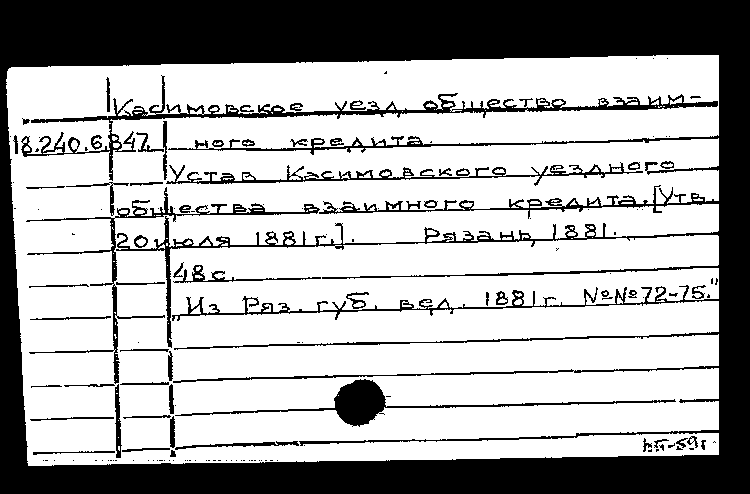 Касимовское уезд. общество взаим-
18.240.6.347. ного кредита.
Устав Касимовского уездного
общества взаимного кредита. [Утв.
20 июля 1881 г.]. Рязань, 1881.
48 с.
"Из Ряз. губ. вед. 1881 г. №№72-75."